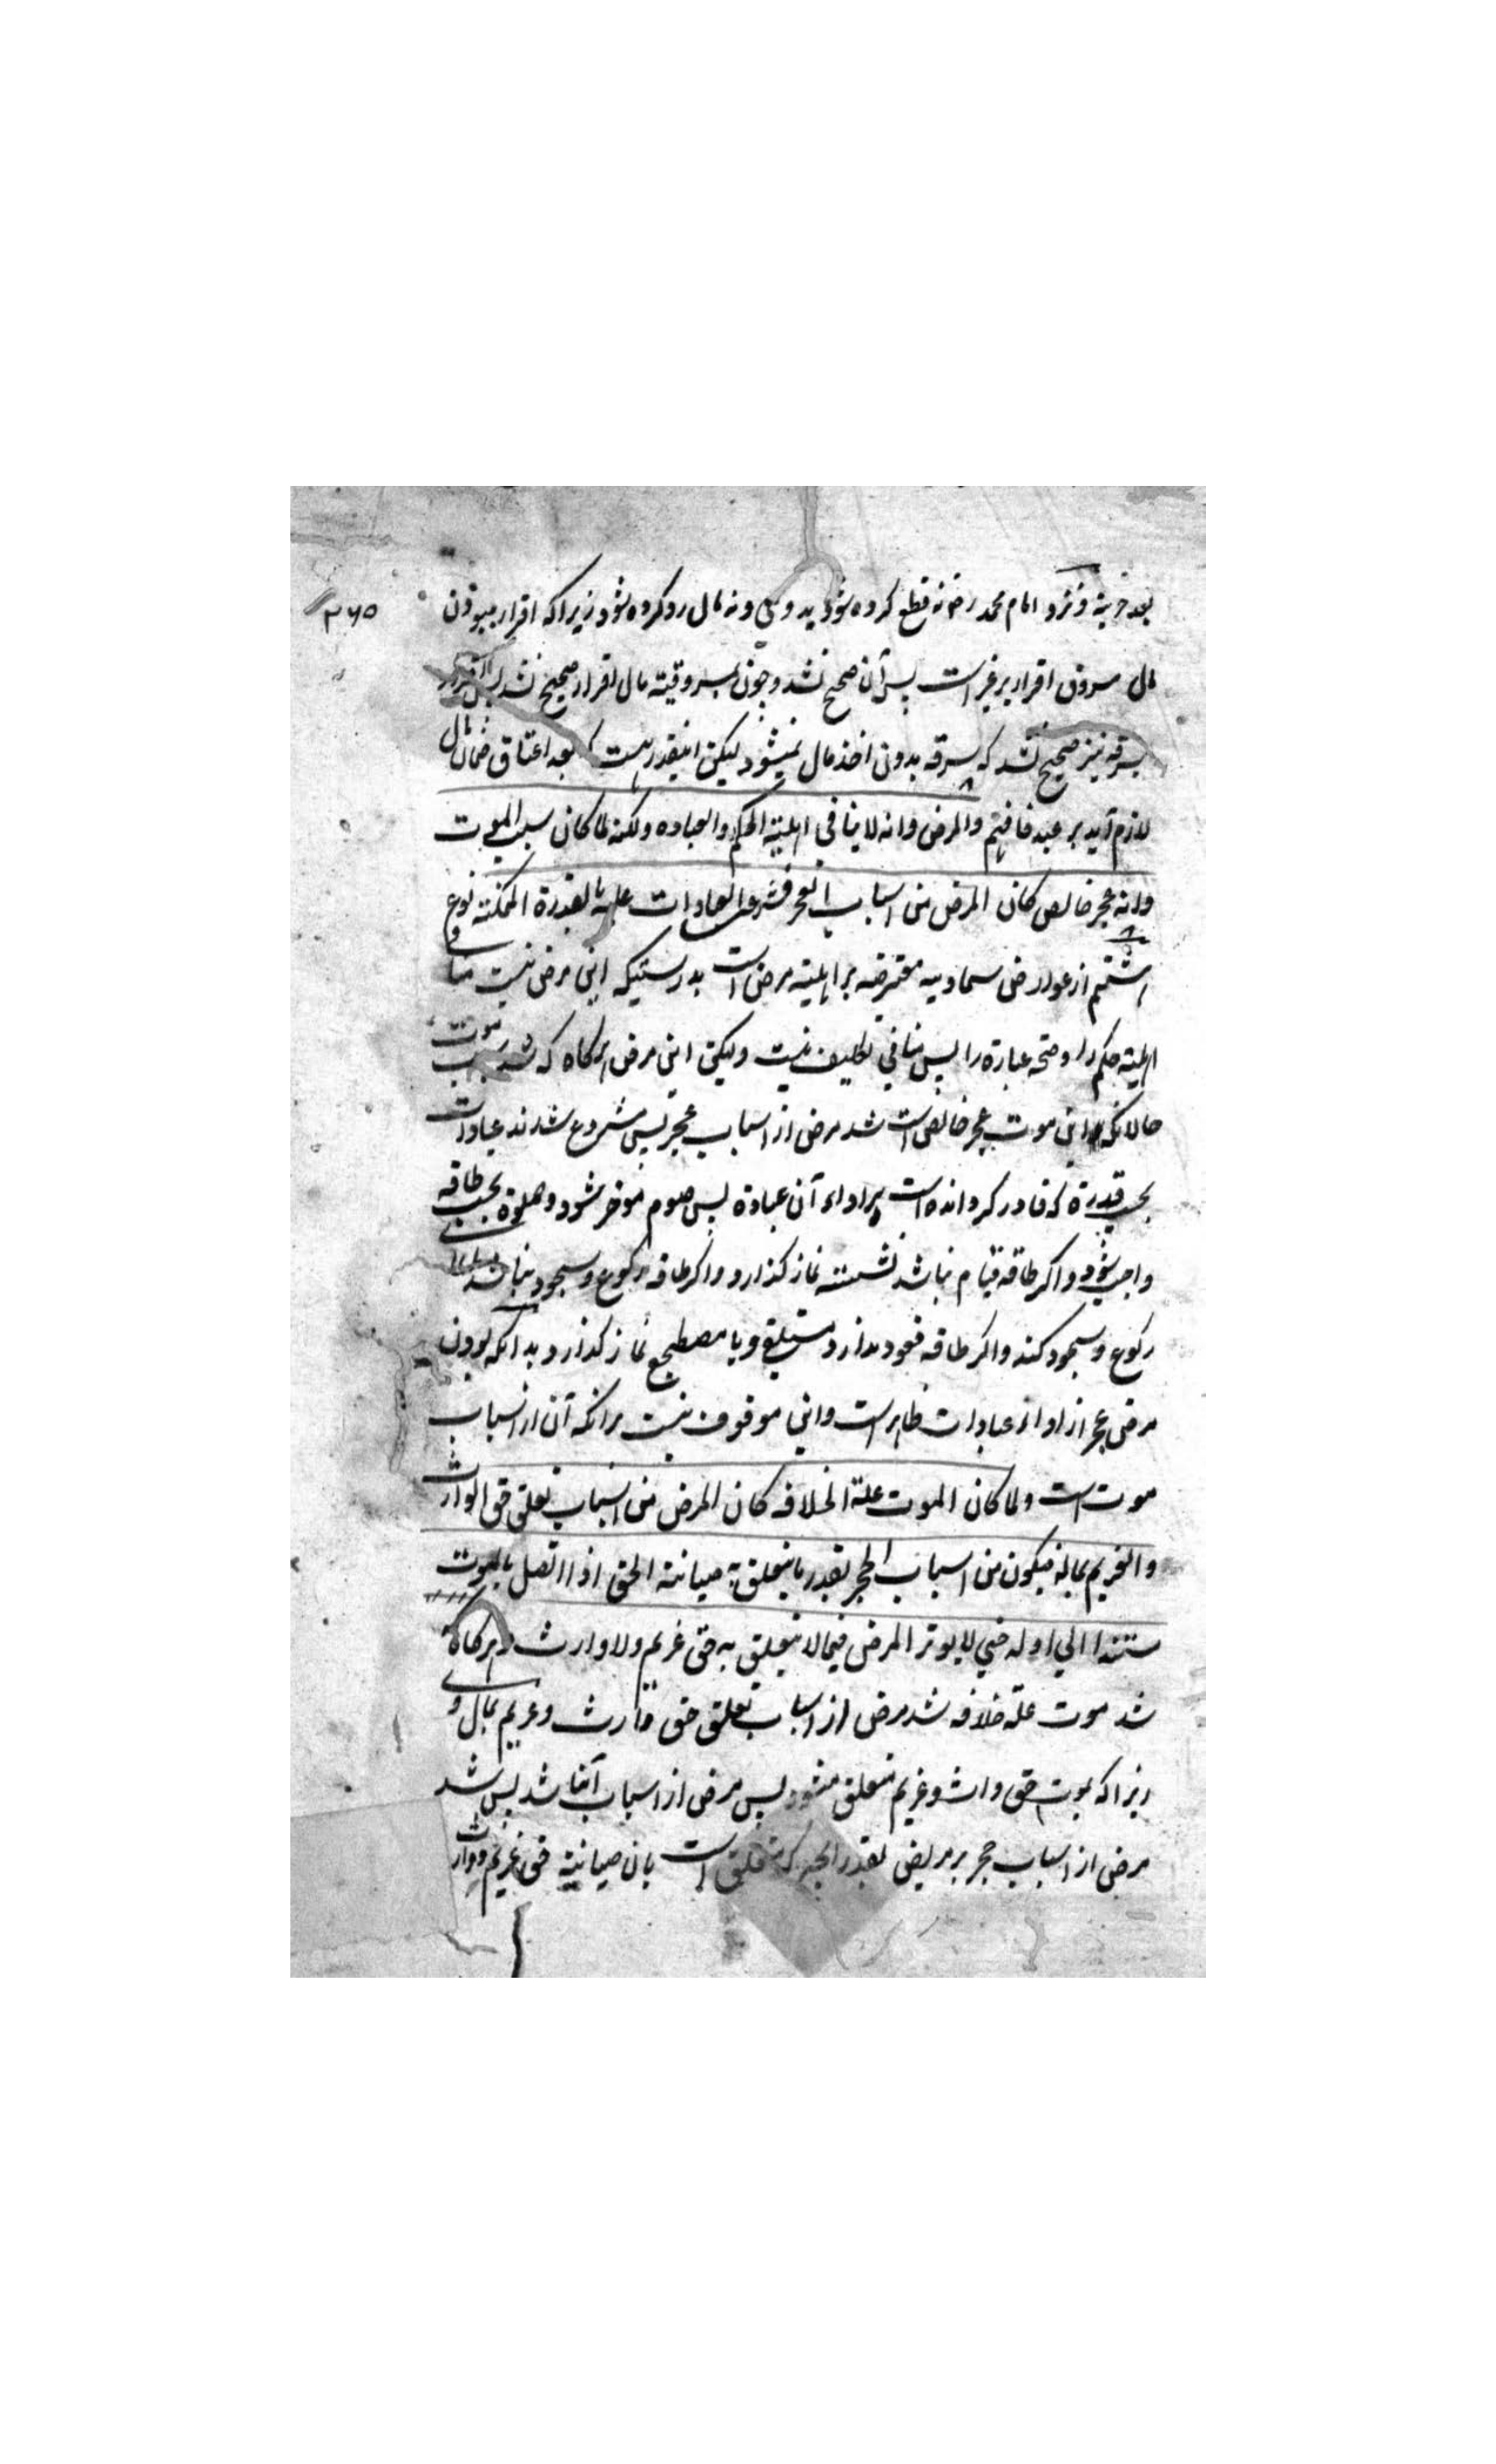 بعد حریة و نزد امام محمد رض نه قطع کرده شود ید وی و نه مال رد کرده شود زیرا که اقرار بمسروق
۳۶۵
مال مسروق اقرار بر غیر است پس آن صحیح نشد و چون بمسروقیته مال اقرار صحیح نشد پس اقرار
بسرقه نیز صحیح نشد که سرقه بدون اخذ مال نمیشود لیکن اینقدر هست که بعد اعتاق ضمان مال
لازم آید بر عبد فافهم والمرض وانه لا ینافی اهلیة الحکم والعباده ولکنه لما کان سبب الموت
وانه عجز خالص کان المرض من اسباب العجز فشرعت العبادات علیه بالقدرة الممکنة نوع
هشتم از عوارض سماویه معترضه بر اهلیته مرض است بدرستیکه این مرض نیست منافی
اهلیته حکم را و صحه عبارة را پس منافی تکلیف نیست ولیکن این مرض هرگاه که شد سبب موت
حالانکه این موت عجز خالص است شد مرض از اسباب عجز پس مشروع شدند عبادات
بحسب قدرة که قادر کردانده است بر اداء آن عبادة پس صوم موخر شود و صلوة بحسب طاقه
واجب شود و اکر طاقه قیام نباشد نشسته نماز کذارد و اکر طاقه رکوع و سجود نباشد
رکوع و سجود کند و اکر طاقه قعود ندارد مستلقی و یا مضطجع نماز کذارد بدانکه بودن
مرض عجز از اداء عبادات ظاهر است و این موقوف نیست بر آنکه آن از اسباب
موت است ولما کان الموت علة الخلافه کان المرض من اسباب تعلق حق الوارث
والغریم بماله فیکون من اسباب الحجر بقدر ما یتعلق به صیانة الحق اذا اتصل بالموت
مستندا الی اوله حتی لا یوثر المرض فیما لا یتعلق به حق غریم ولا وارث و هرکاه
شد موت علة خلافه شد مرض از اسباب تعلق حق وارث و غریم بمال وی
زیرا که بموت حق وارث و غریم متعلق میشود پس مرض از اسباب آنها شد پس شد
مرض از اسباب حجر بر مریض بقدر آنچه که متعلق است بآن صیانة حق غریم و وارث